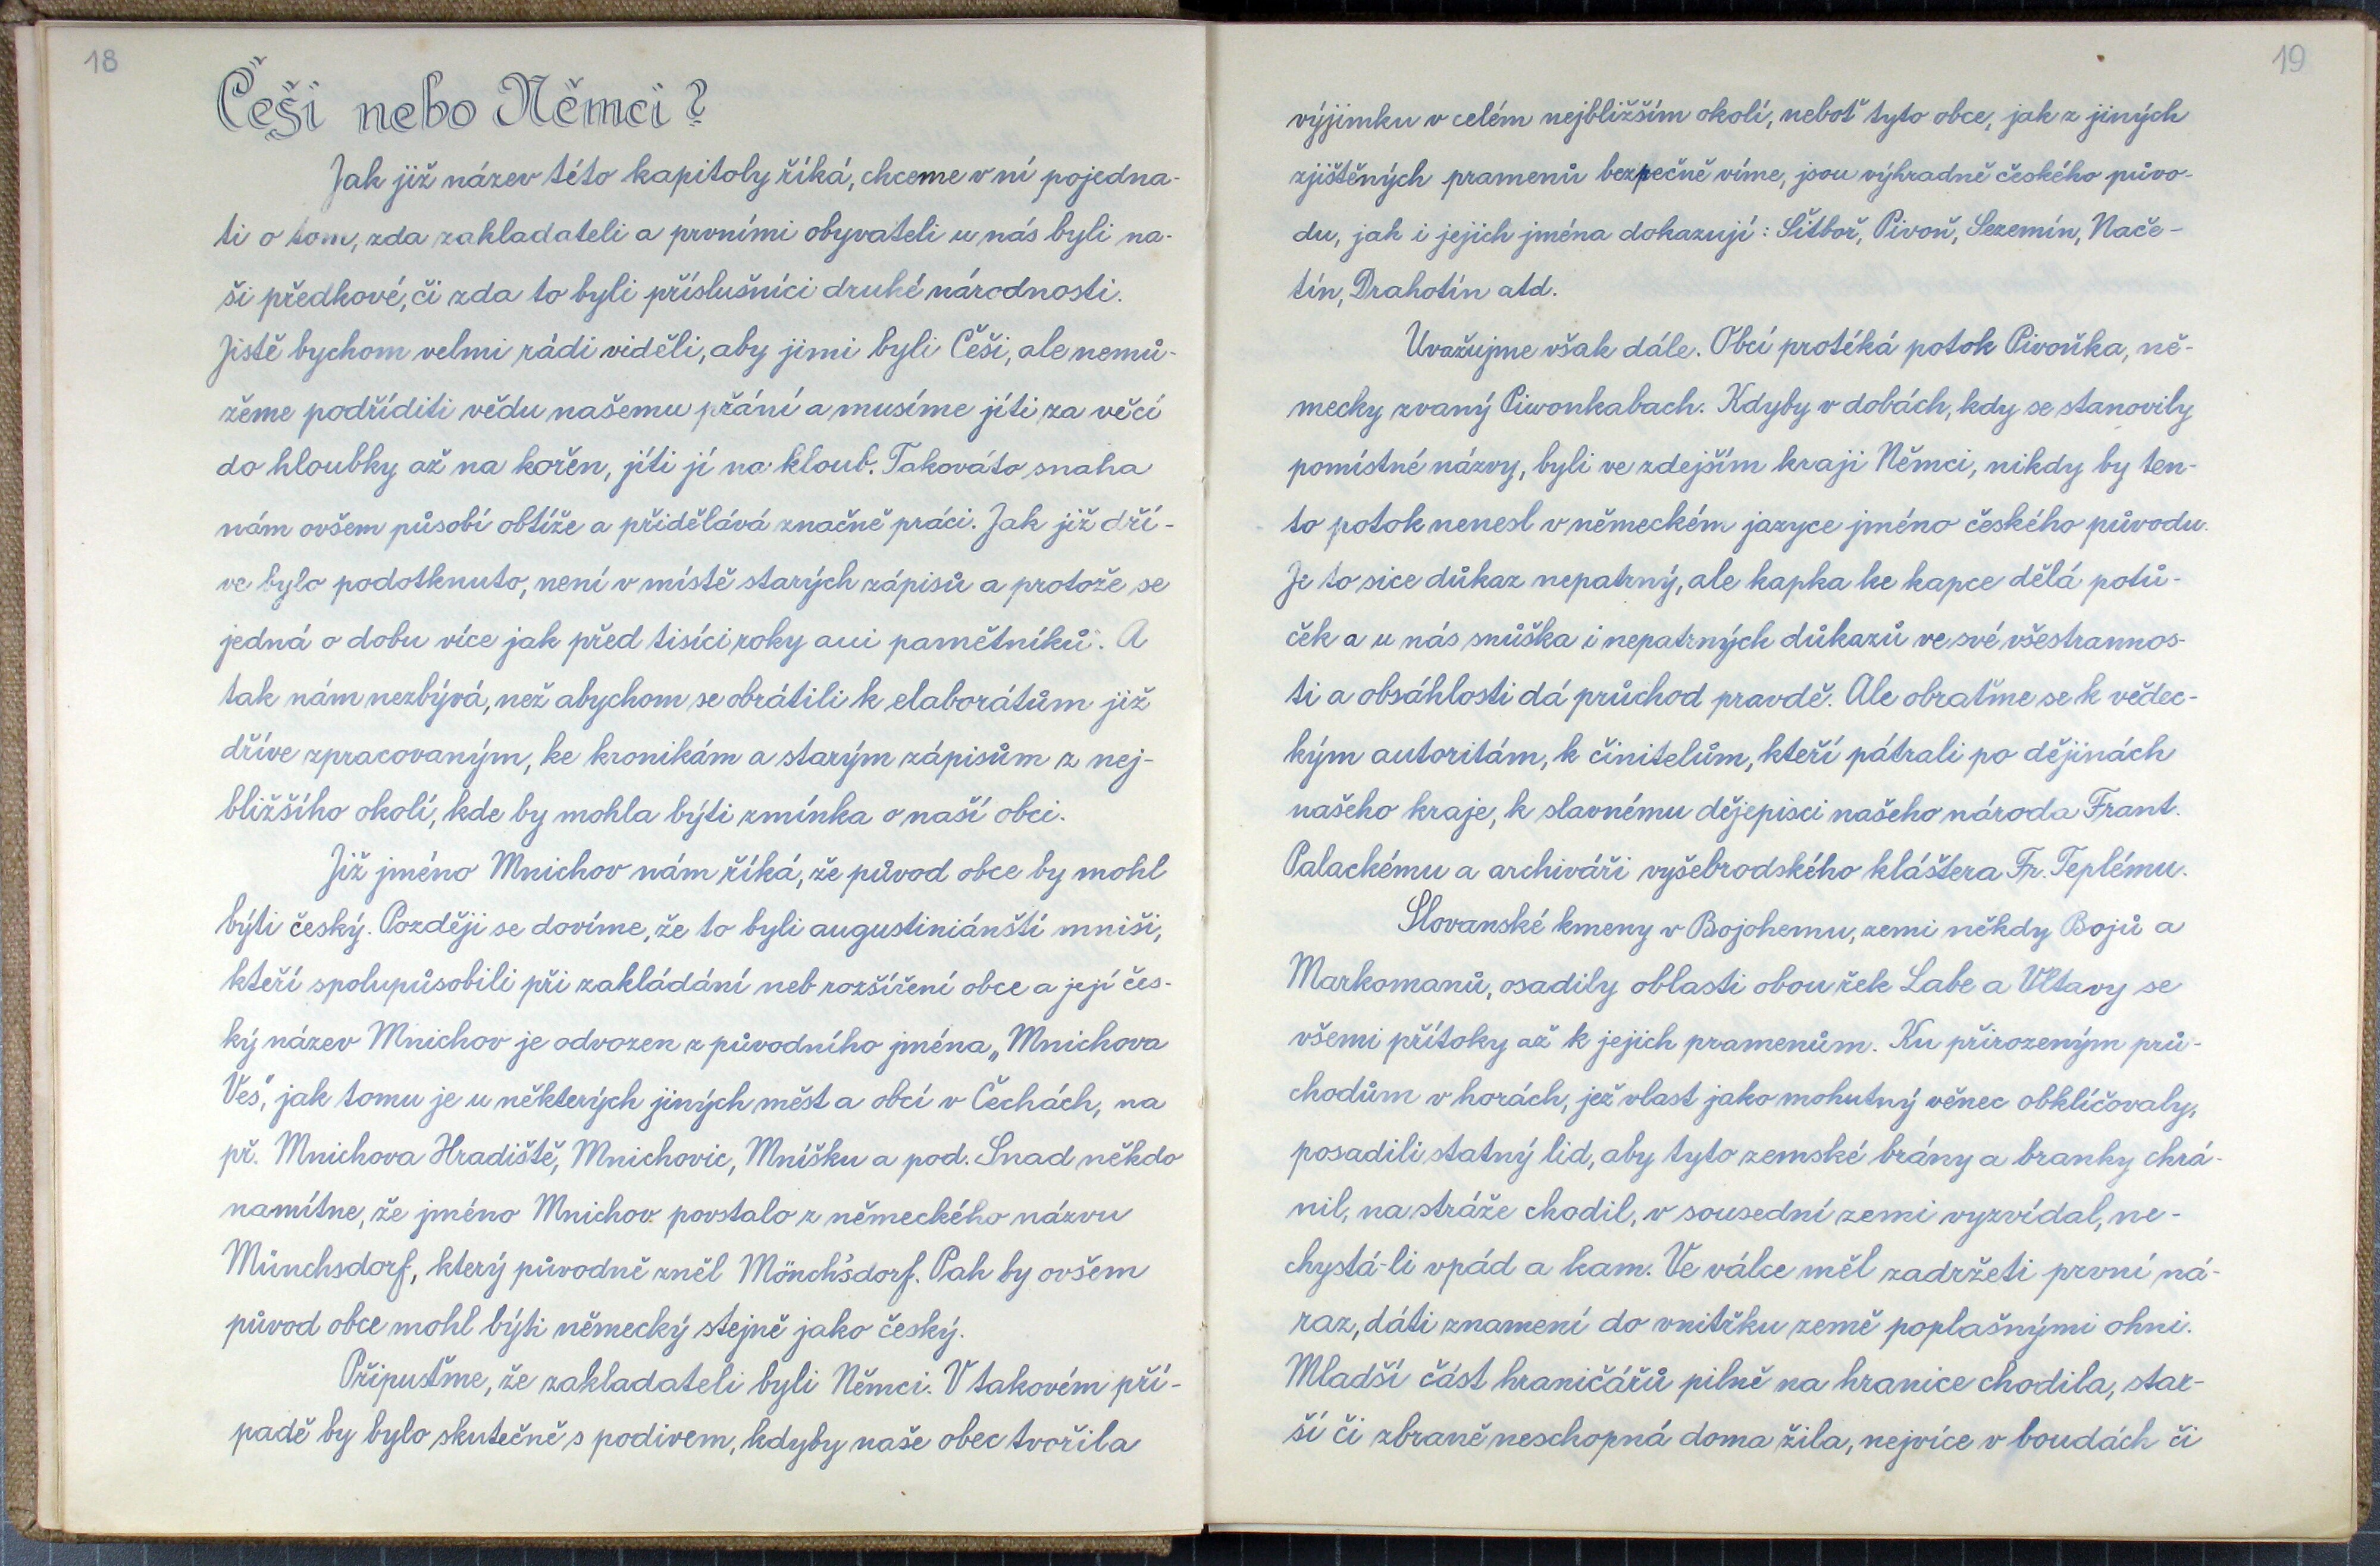 18
Češi nebo Němci?
Jak již název této kapitoly říká, chceme v ní pojedna-
ti o tom, zda zakladateli a prvními obyvateli u nás byli na-
ši předkové, či zda to byli příslušníci druhé národnosti.
Jistě bychom velmi rádi viděli, aby jimi byli Češi, ale nemů-
žeme podříditi vědu našemu přání a musíme jíti za věcí
do hloubky až na kořen, jíti jí na kloub. Takováto snaha
nám ovšem působí obtíže a přidělává značně práci. Jak již dří-
ve bylo podotknuto, není v místě starých zápisů a protože se
jedná o dobu více jak před tisíci roky ani pamětníků. A
tak nám nezbývá, než abychom se obrátili k elaborátům již
dříve zpracovaným, ke kronikám a starým zápisům z nej-
bližšího okolí, kde by mohla býti zmínka o naší obci.
Již jméno Mnichov nám říká, že původ obce by mohl
býti český. Později se dovíme, že to byli augustiniánští mniši,
kteří spolupůsobili při zakládání neb rozšíření obce a její čes-
ký název Mnichov je odvozen z původního jména „Mnichova
Ves", jak tomu je u některých jiných měst a obcí v Čechách, na
př. Mnichova Hradiště, Mnichovic, Mníšku a pod. Snad někdo
namítne, že jméno Mnichov povstalo z německého názvu
Münchsdorf, který původně zněl Mönch'sdorf. Pak by ovšem
původ obce mohl býti německý stejně jako český.
Připusťme, že zakladateli byli Němci. V takovém pří-
padě by bylo skutečně s podivem, kdyby naše obec tvořila
19
výjimku v celém nejbližším okolí, neboť tyto obce, jak z jiných
zjištěných pramenů bezpečně víme, jsou výhradně českého půvo-
du, jak i jejich jména dokazují: Šitboř, Pivoň, Sezemín, Nače-
tín, Drahotín atd.
Uvažujme však dále. Obcí protéká potok Pivoňka, ně-
mecky zvaný Piwonkabach. Kdyby v dobách, kdy se stanovily
pomístné názvy, byli ve zdejším kraji Němci, nikdy by ten-
to potok nenesl v německém jazyce jméno českého původu.
Je to sice důkaz nepatrný, ale kapka ke kapce dělá potů-
ček a u nás snůška i nepatrných důkazů ve své všestrannos-
ti a obsáhlosti dá průchod pravdě. Ale obraťme se k vědec-
kým autoritám, k činitelům, kteří pátrali po dějinách
našeho kraje, k slavnému dějepisci našeho národa Frant.
Palackému a archiváři vyšebrodského kláštera Fr. Teplému.
Slovanské kmeny v Bojohemu, zemi někdy Bojů a
Markomanů, osadily oblasti obou řek Labe a Vltavy se
všemi přítoky až k jejich pramenům. Ku přirozeným prů-
chodům v horách, jež vlast jako mohutný věnec obklíčovaly,
posadili statný lid, aby tyto zemské brány a branky chrá-
nil, na stráže chodil, v sousední zemi vyzvídal, ne-
chystá-li vpád a kam. Ve válce měl zadržeti první ná-
raz, dáti znamení do vnitřku země poplašnými ohni.
Mladší část hraničářů pilně na hranice chodila, star-
ší či zbraně neschopná doma žila, nejvíce v boudách či